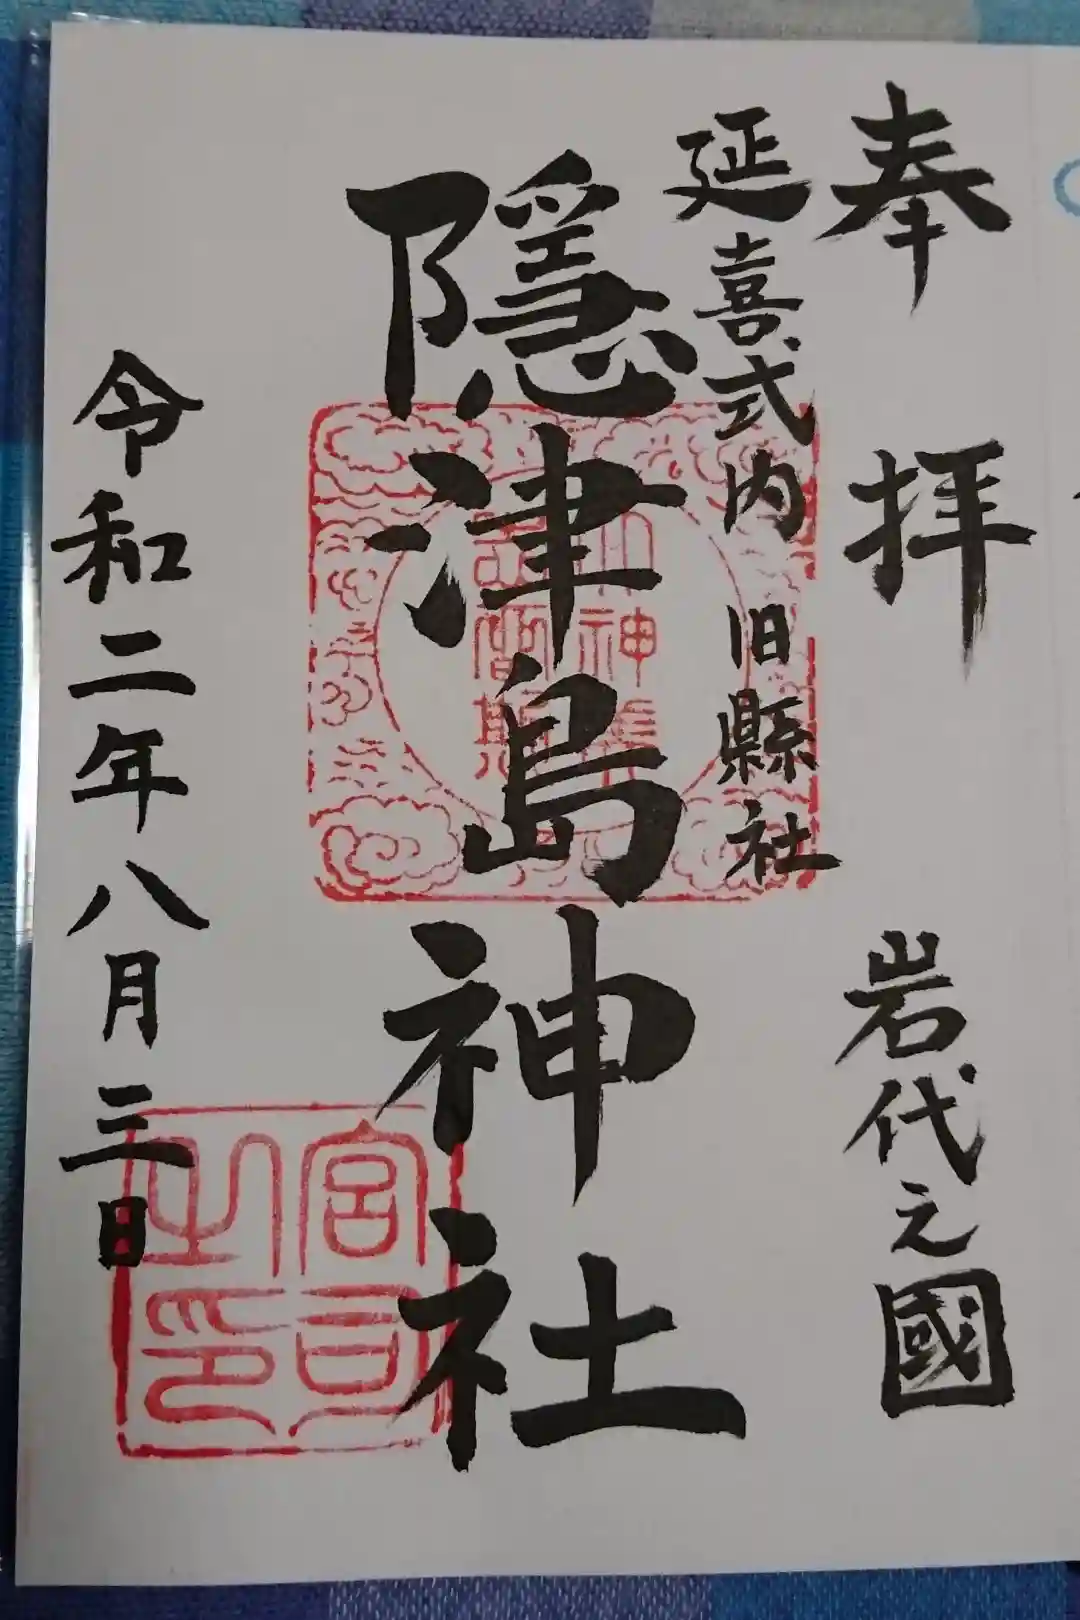 奉拝 岩代之國
延喜式内 旧縣社
隠津島神社
令和二年八月三日
宮司之印